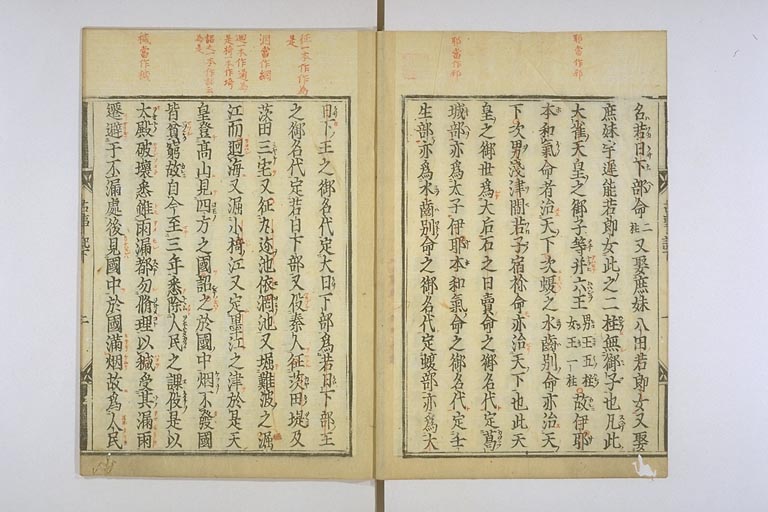 耶當作邪
耶當作邪
名若日下部命二柱又娶庶妹八田若郎女又娶
庶妹宇遲能若郎女此之二柱無御子也凡此
大雀天皇之御子等并六王男王五柱女王一柱故伊耶
本和氣命者治天下次蝮之水齒別命亦治天
下次男淺津間若子宿祢命亦治天下也此天
皇之御世爲大后石之日賣命之御名代定葛
城部亦爲太子伊耶本和氣命之御名代定壬
生部亦爲水齒別命之御名代定蝮部亦爲大
征一本作作爲是
淵當作網
穢當作椷
日下王之御名代定大日下部爲若日下部王
之御名代定若日下部又伇秦人征茨田堤及
茨田三宅又征丸迩池依網池又堀難波之堀
江而𢌞海又堀小椅江又定墨江之津於是天
皇登高山見四方之國詔之於國中烟不發國
皆貧窮故自今至三年悉除人民之課伇是以
太殿破壞悉雖雨漏都勿脩理以穢受其漏雨
遷避于不漏處後見國中於國滿烟故爲人民